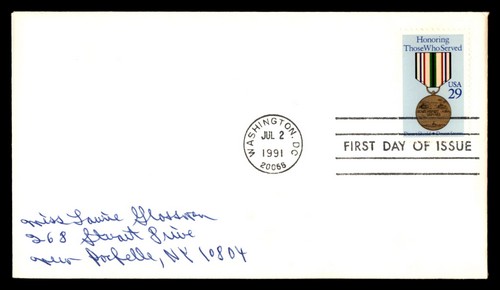 Honoring
Those Who Served
USA
29
WASHINGTON, DC
JUL 2
1991
20066
FIRST DAY OF ISSUE
Miss Laurie Glassman
268 Stuart Drive
New Rochelle, NY 10804